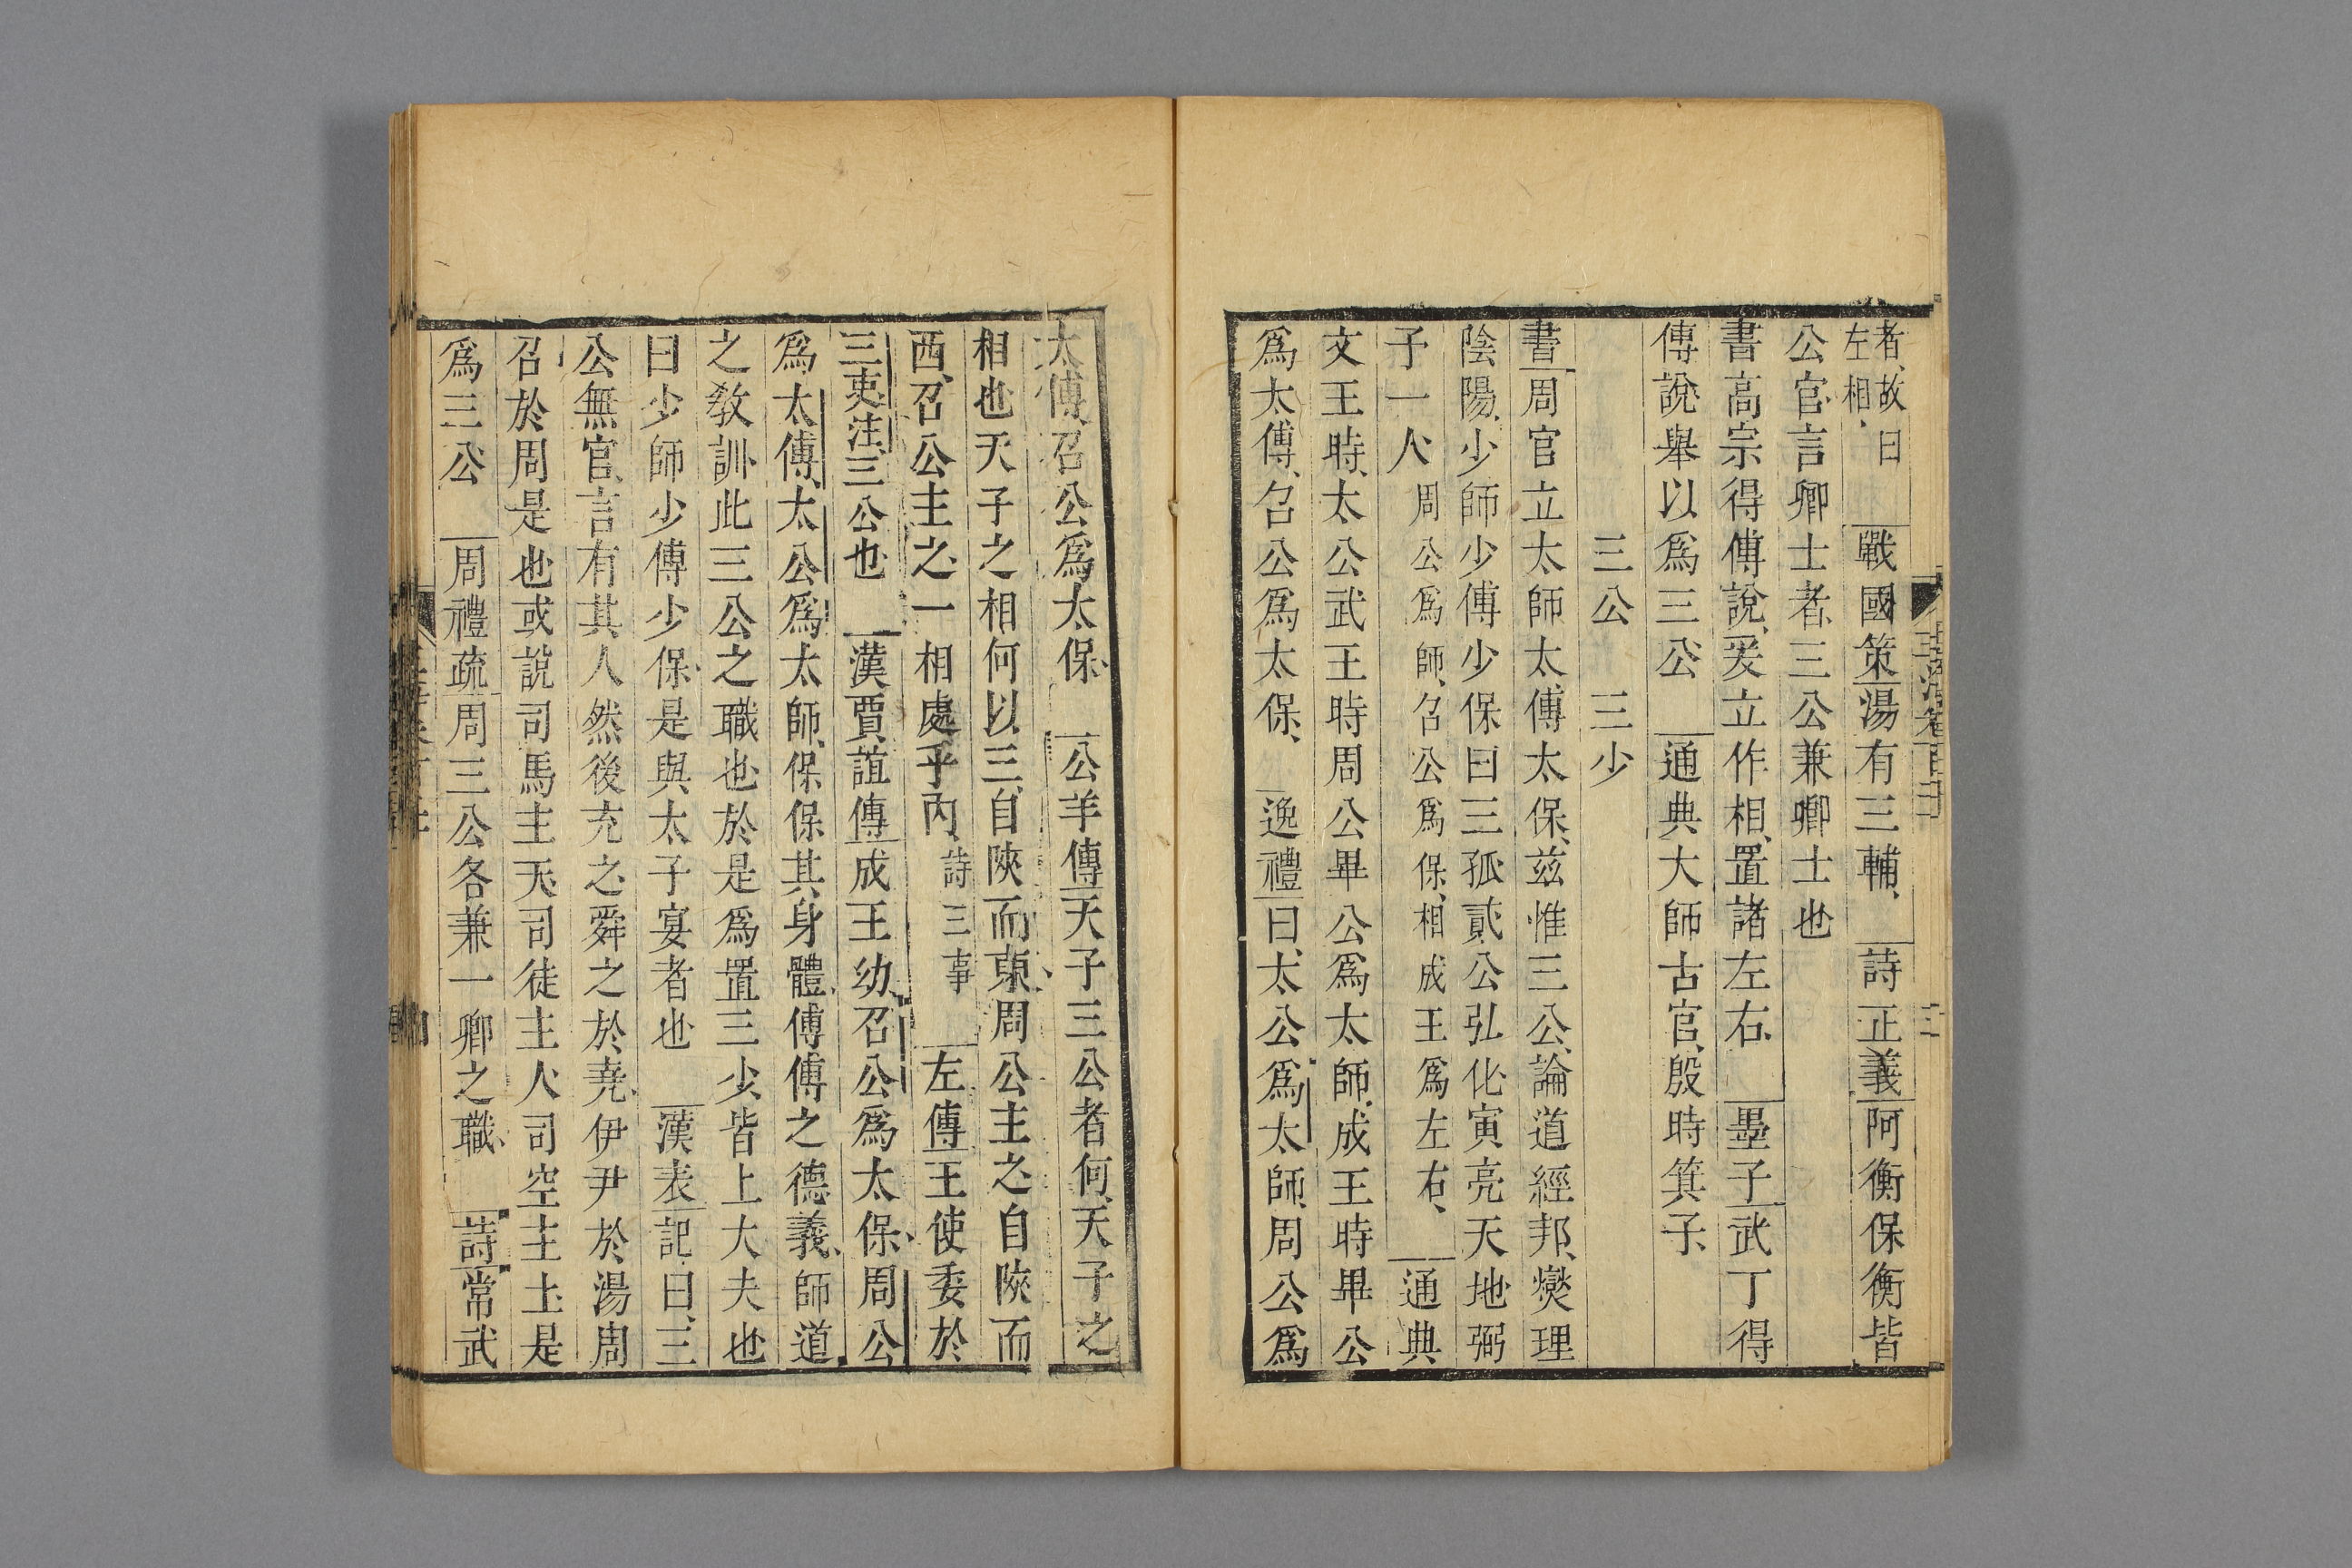 者故曰左相 戰國策湯有三輔 詩正義阿衡保衡皆
公官言卿士者三公兼卿士也
書高宗得傅說爰立作相置諸左右 墨子武丁得
傅說舉以爲三公 通典大師古官殷時箕子
三公 三少
書周官立太師太傅太保茲惟三公論道經邦燮理
陰陽少師少傅少保曰三孤貳公弘化寅亮天地弼
予一人 周公爲師召公爲保相成王爲左右 通典
文王時太公武王時周公畢公爲太師成王時畢公
爲太傅召公爲太保 逸禮曰太公爲太師周公爲
太傅召公爲太保 公羊傳天子三公者何天子之
相也天子之相何以三自陝而東周公主之自陝而
西召公主之一相處乎內 詩三事 左傳王使委於
三吏注三公也 漢賈誼傳成王幼召公爲太保周公
爲太傅太公爲太師保保其身體傅傅之德義師道
之敎訓此三公之職也於是爲置三少皆上大夫也
曰少師少傅少保是與太子宴者也 漢表記曰三
公無官言有其人然後充之舜之於堯伊尹於湯周
召於周是也或說司馬主天司徒主人司空主土是
爲三公 周禮疏周三公各兼一卿之職 詩常武